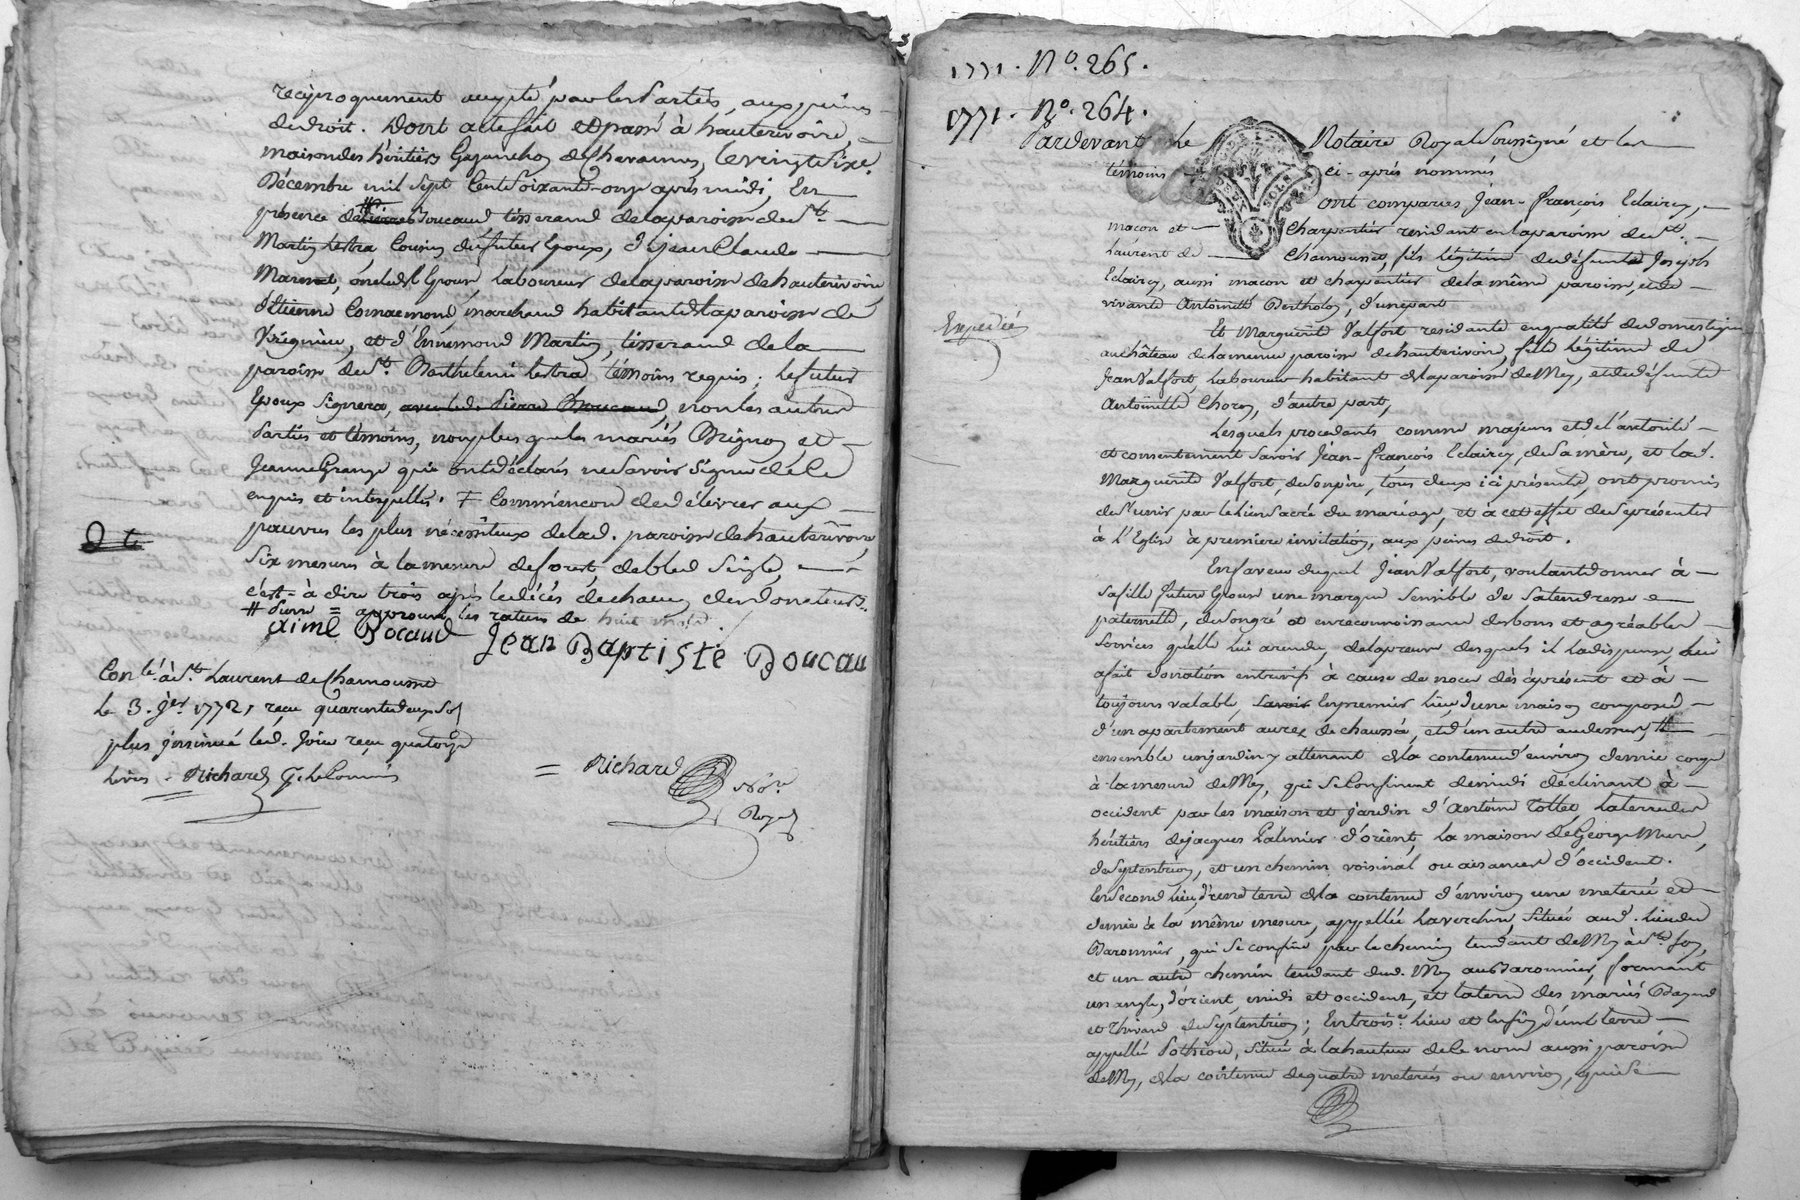 reciproquement accepté par les Parties, aux peines
de droit. Dont acte fait et passé à hauterivoire,
maison des héritiers de Chavannes, le vingt sixe.
Décembre mil sept Cent Soixante-onze après midi, En
présence de Boucaud tisserand de la paroisse de St.
Martin Lestra, Cousin du futur Epoux, de jean Claude
oncle dud Epoux, Laboureur de la paroisse de hauterivoire,
d'Etienne marchand habitant de la paroisse de
et d'Ennemond Martin, tisserand de la
paroisse de St. Barthelemi Lestra, témoins requis; le futur
Epoux Signera, avec led. Pierre Boucaud, non les autres
Parties et témoins, non plus que les mariés Brignon, et
Jeanne Grange qui ont déclarés ne Savoir Signer de ce
enquis et interpellés. Commencon de délivrer aux
pauvres les plus nécessiteux de lad. paroisse de hauterivoire,
Six mesures à la mesure de foret de bled Seigle,
c'est-à dire trois après le décès de chacun des donateurs.
# Pierre = approuvé les ratures de huit mots.
aimé Bocaud Jean Baptiste Boucau
Conlé à St. Laurent de Chamousset
le 3. jer. 1772, reçu quarente deux Sols
plus insinué led. Jour reçu quatorze
Livres - Richard
= Richard
Nore
Royal
1771. No. 265.
1771. No. 264.
Pardevant le Notaire Royal Soussigné et les
témoins ci-après nommés
ont comparus Jean-françois Eclaircy,
macon et Charpentier residant en la paroisse de St.
Laurent de Chamousset, fils légitime de défunt Joseph
Eclaircy, aussi macon et charpentier de la même paroisse, et de
vivante Antoinette Bertholon, d'une part
Expedié
Et Marguerite Valfort residante en qualité de domestique
au château de la meme paroisse de hauterivoire, fille légitime de
Jean Valfort, Laboureur habitant de la paroisse de Mey, et de défunte
Antoinette Chozon, d'autre part,
Lesquels procedants comme majeurs et de l'autorité
et consentement Savoir Jean-françois Eclaircy, de Sa mère, et lad.
Marguerite Valfort, de Son père, tous deux ici présents, ont promis
de S'unir par le lien Sacré du mariage, et à cet effet de Se présenter
à l'Eglise à première invitation, aux peines de droit.
En faveur duquel Jean Valfort, voulant donner à
Sa fille future Epouse une marque Sensible de Sa tendresse
paternelle, de Son gré et en reconnoissance des bons et agréables
Services qu'elle lui a rendu, de la preuve desquels il la dispense, lui
a fait donation entrevifs à cause de noces dès àprésent et à
toujours valable, Savoir En premier lieu d'une maison composée
d'un apartement au rez de chaussée, et d'un autre au dessus, #
ensemble un jardin y attenant de la contenue d'environ demie coupe
à la mesure de Mey, qui Se Confinent de midi déclinant à
occident par les maison et jardin d'Antoine Tollet, la terre des
héritiers de jacques Palmier d'orient, la maison de George
de Septentrion, et un chemin voisinal ou aisances d'occident.
En Second lieu, d'une terre de la contenue d'environ une meterée et
demie à la même mesure, appellée Laverchere, Située aud. lieu du
Baronnier, qui Se confine par le chemin tendant de Mey à Ste. foy,
et un autre chemin tendant dud. Mey au Baronnier, formant
un angle, d'orient, midi et occident, et la terre des mariés
et Thivard de Septentrion; En troise. lieu et enfin d'une terre
appellée Pothiou, Située à la hauteur de ce nom aussi paroisse
de Mey, de la contenue de quatre meterées ou environ, qui Se